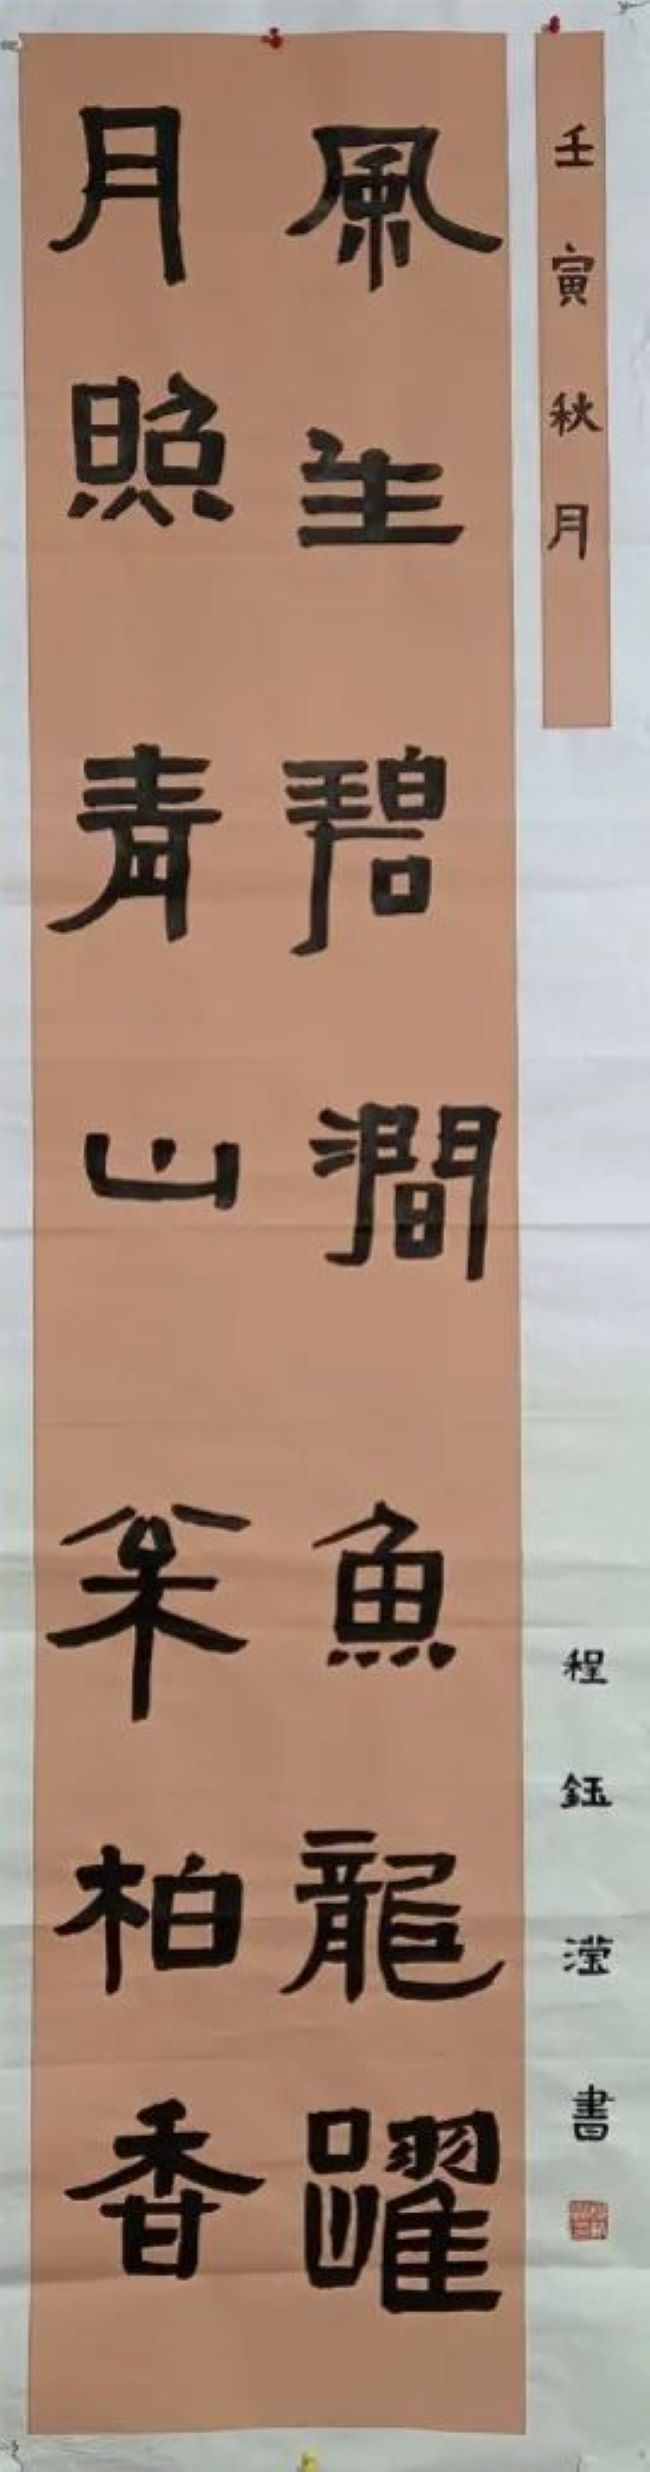 風生碧澗魚龍躍
月照青山松柏香
壬寅秋月
程鈺滢書